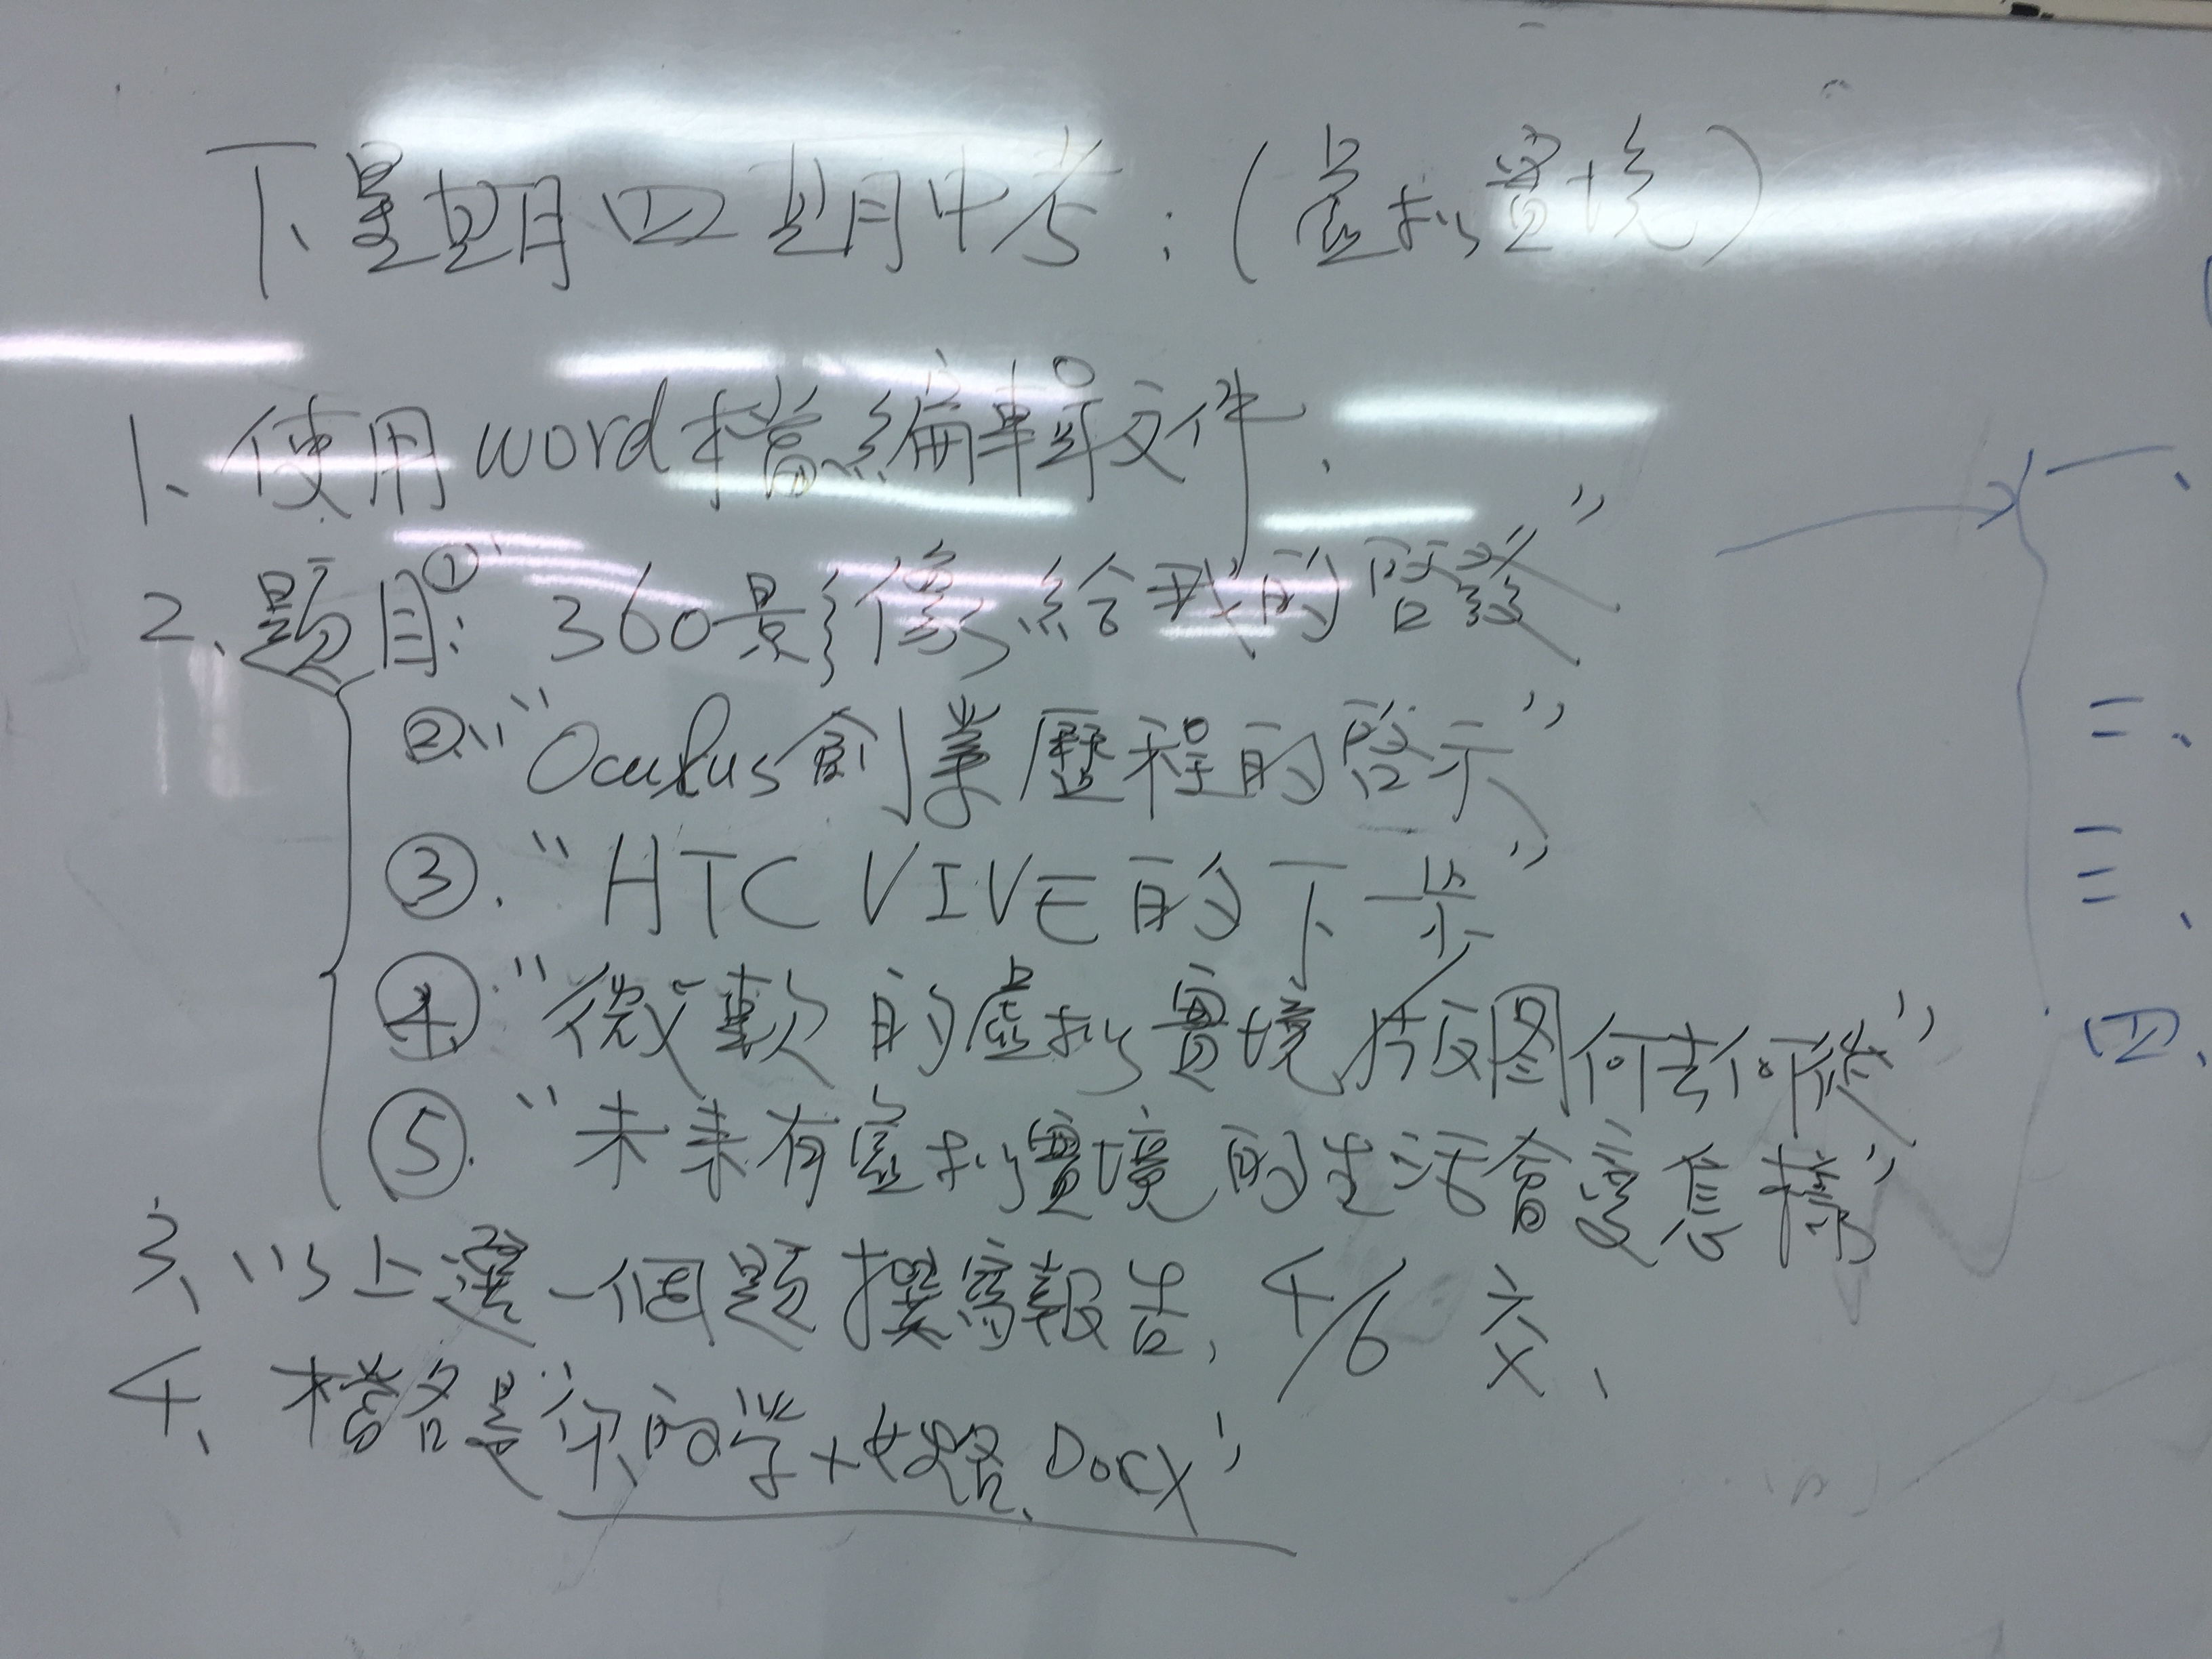 下星期四期中考:(虛拟實境)
1、使用word檔編輯文件.
2、題目:①"360景彩像給我的啓發"
②"Oculus創業歷程的啓示"
③."HTC VIVE的下一步"
④."微軟的虛拟實境版图何去何從"
⑤."未來有虛拟實境的生活會變怎樣"
3、以上選一個題撰寫報告, 4/6 交、
4、檔名是"你的学+姓名.Docx"
一、
二、
三、
四、